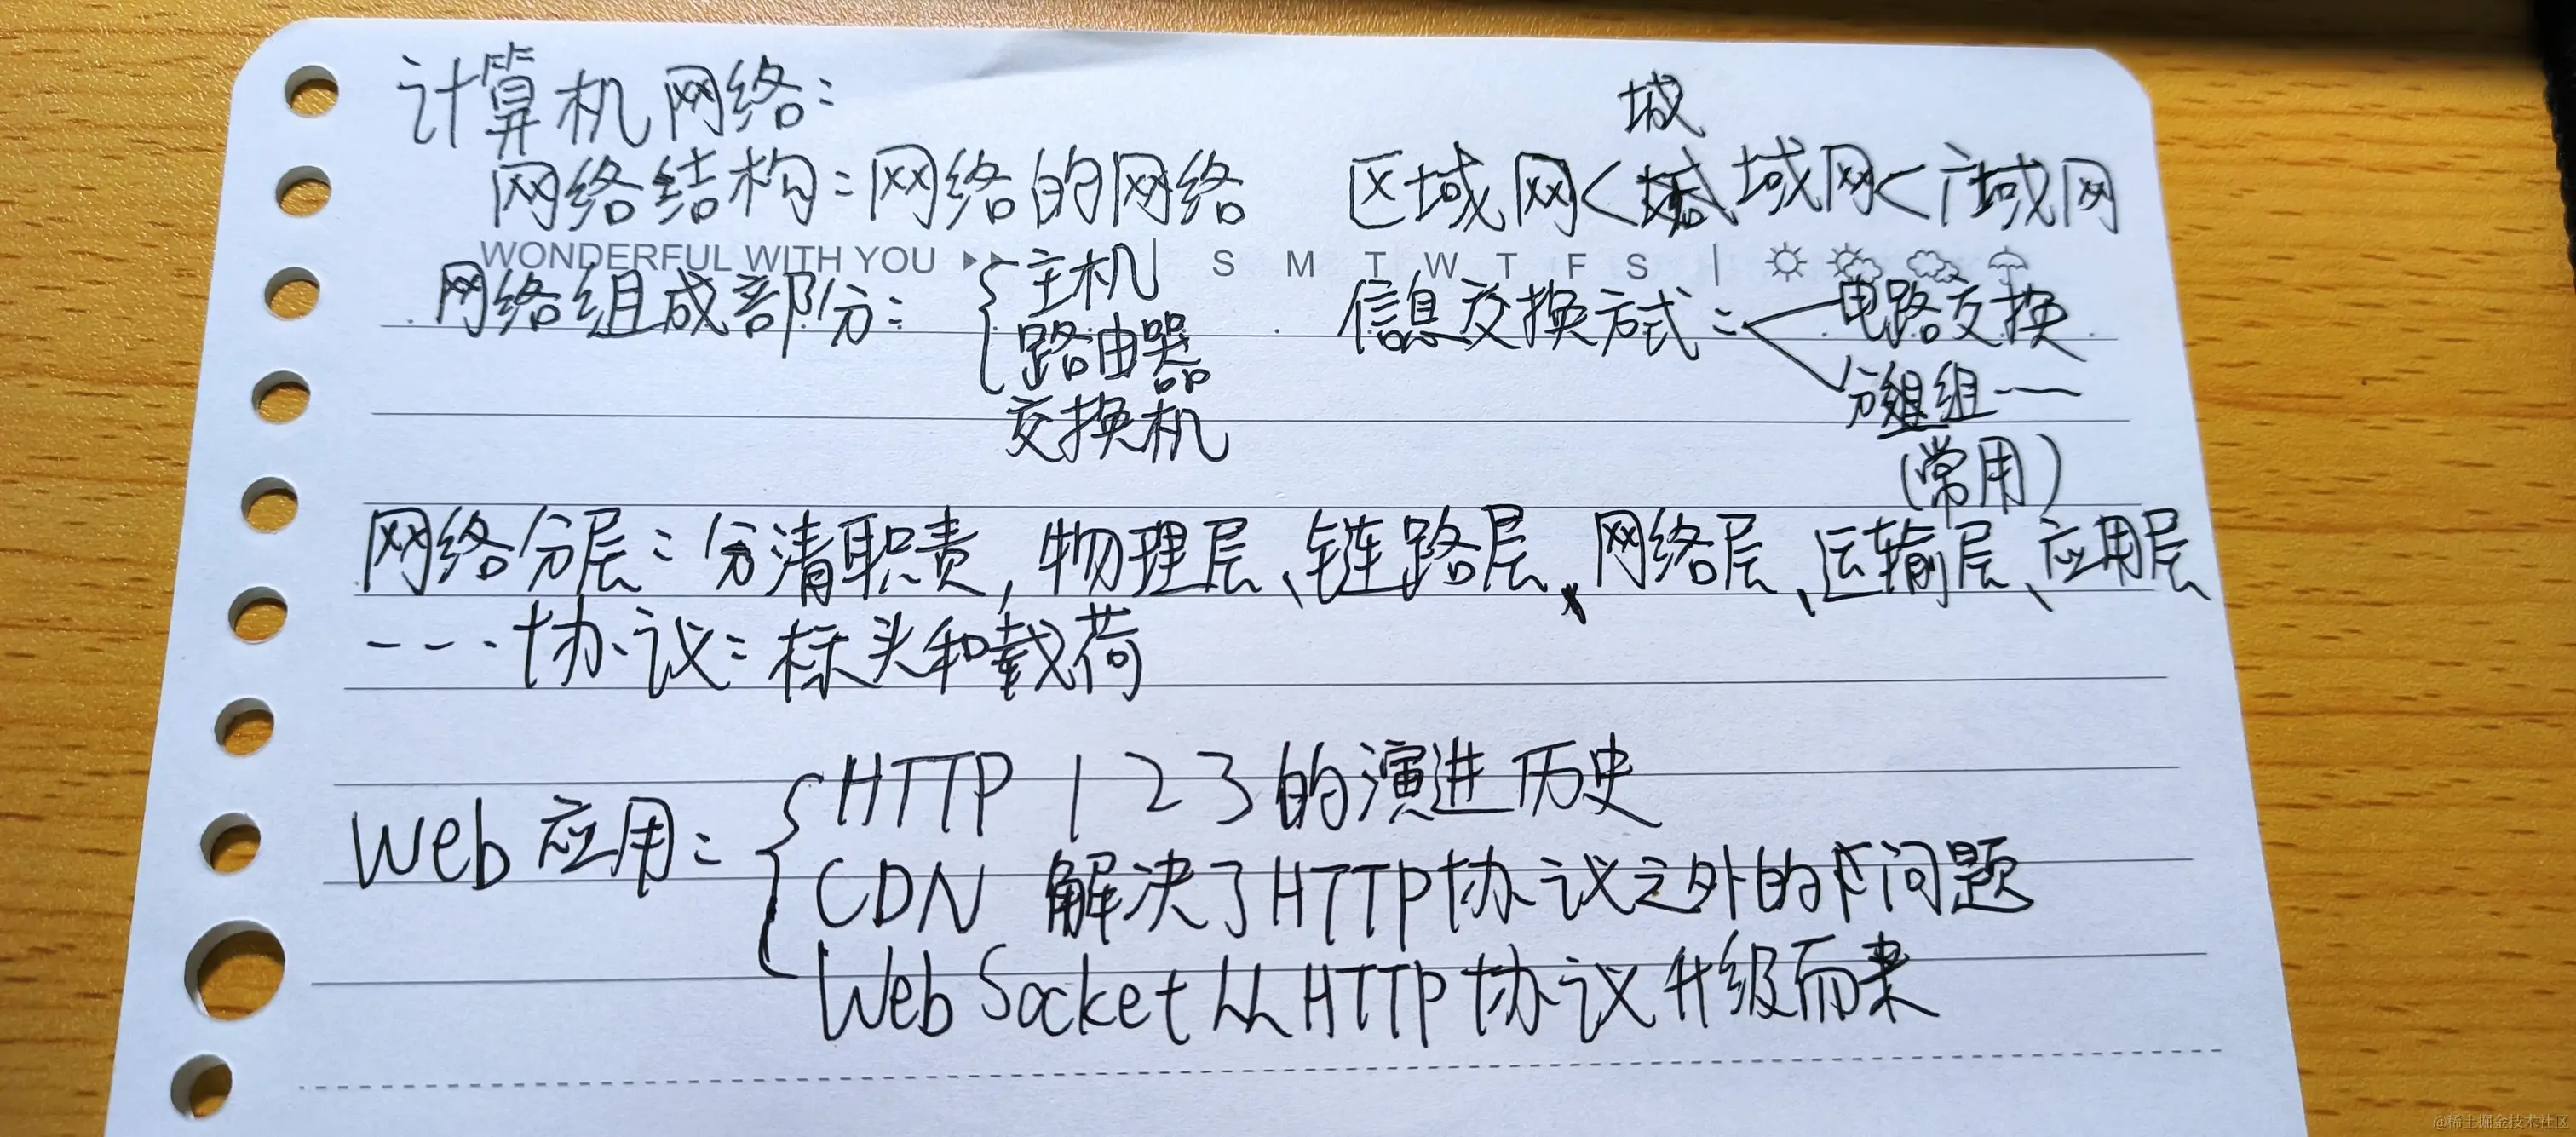 计算机网络：
网络结构：网络的网络 区域网<城域网<广域网
WONDERFUL WITH YOU S M T W T F S
网络组成部分： 主机 信息交换方式： 电路交换
路由器
分组一
交换机
(常用)
网络分层：分清职责，物理层、链路层、网络层、运输层、应用层
---协议：标头和载荷
HTTP 1 2 3的演进历史
Web应用：
CDN 解决了HTTP协议之外的问题
WebSocket从HTTP协议升级而来
@稀土掘金技术社区